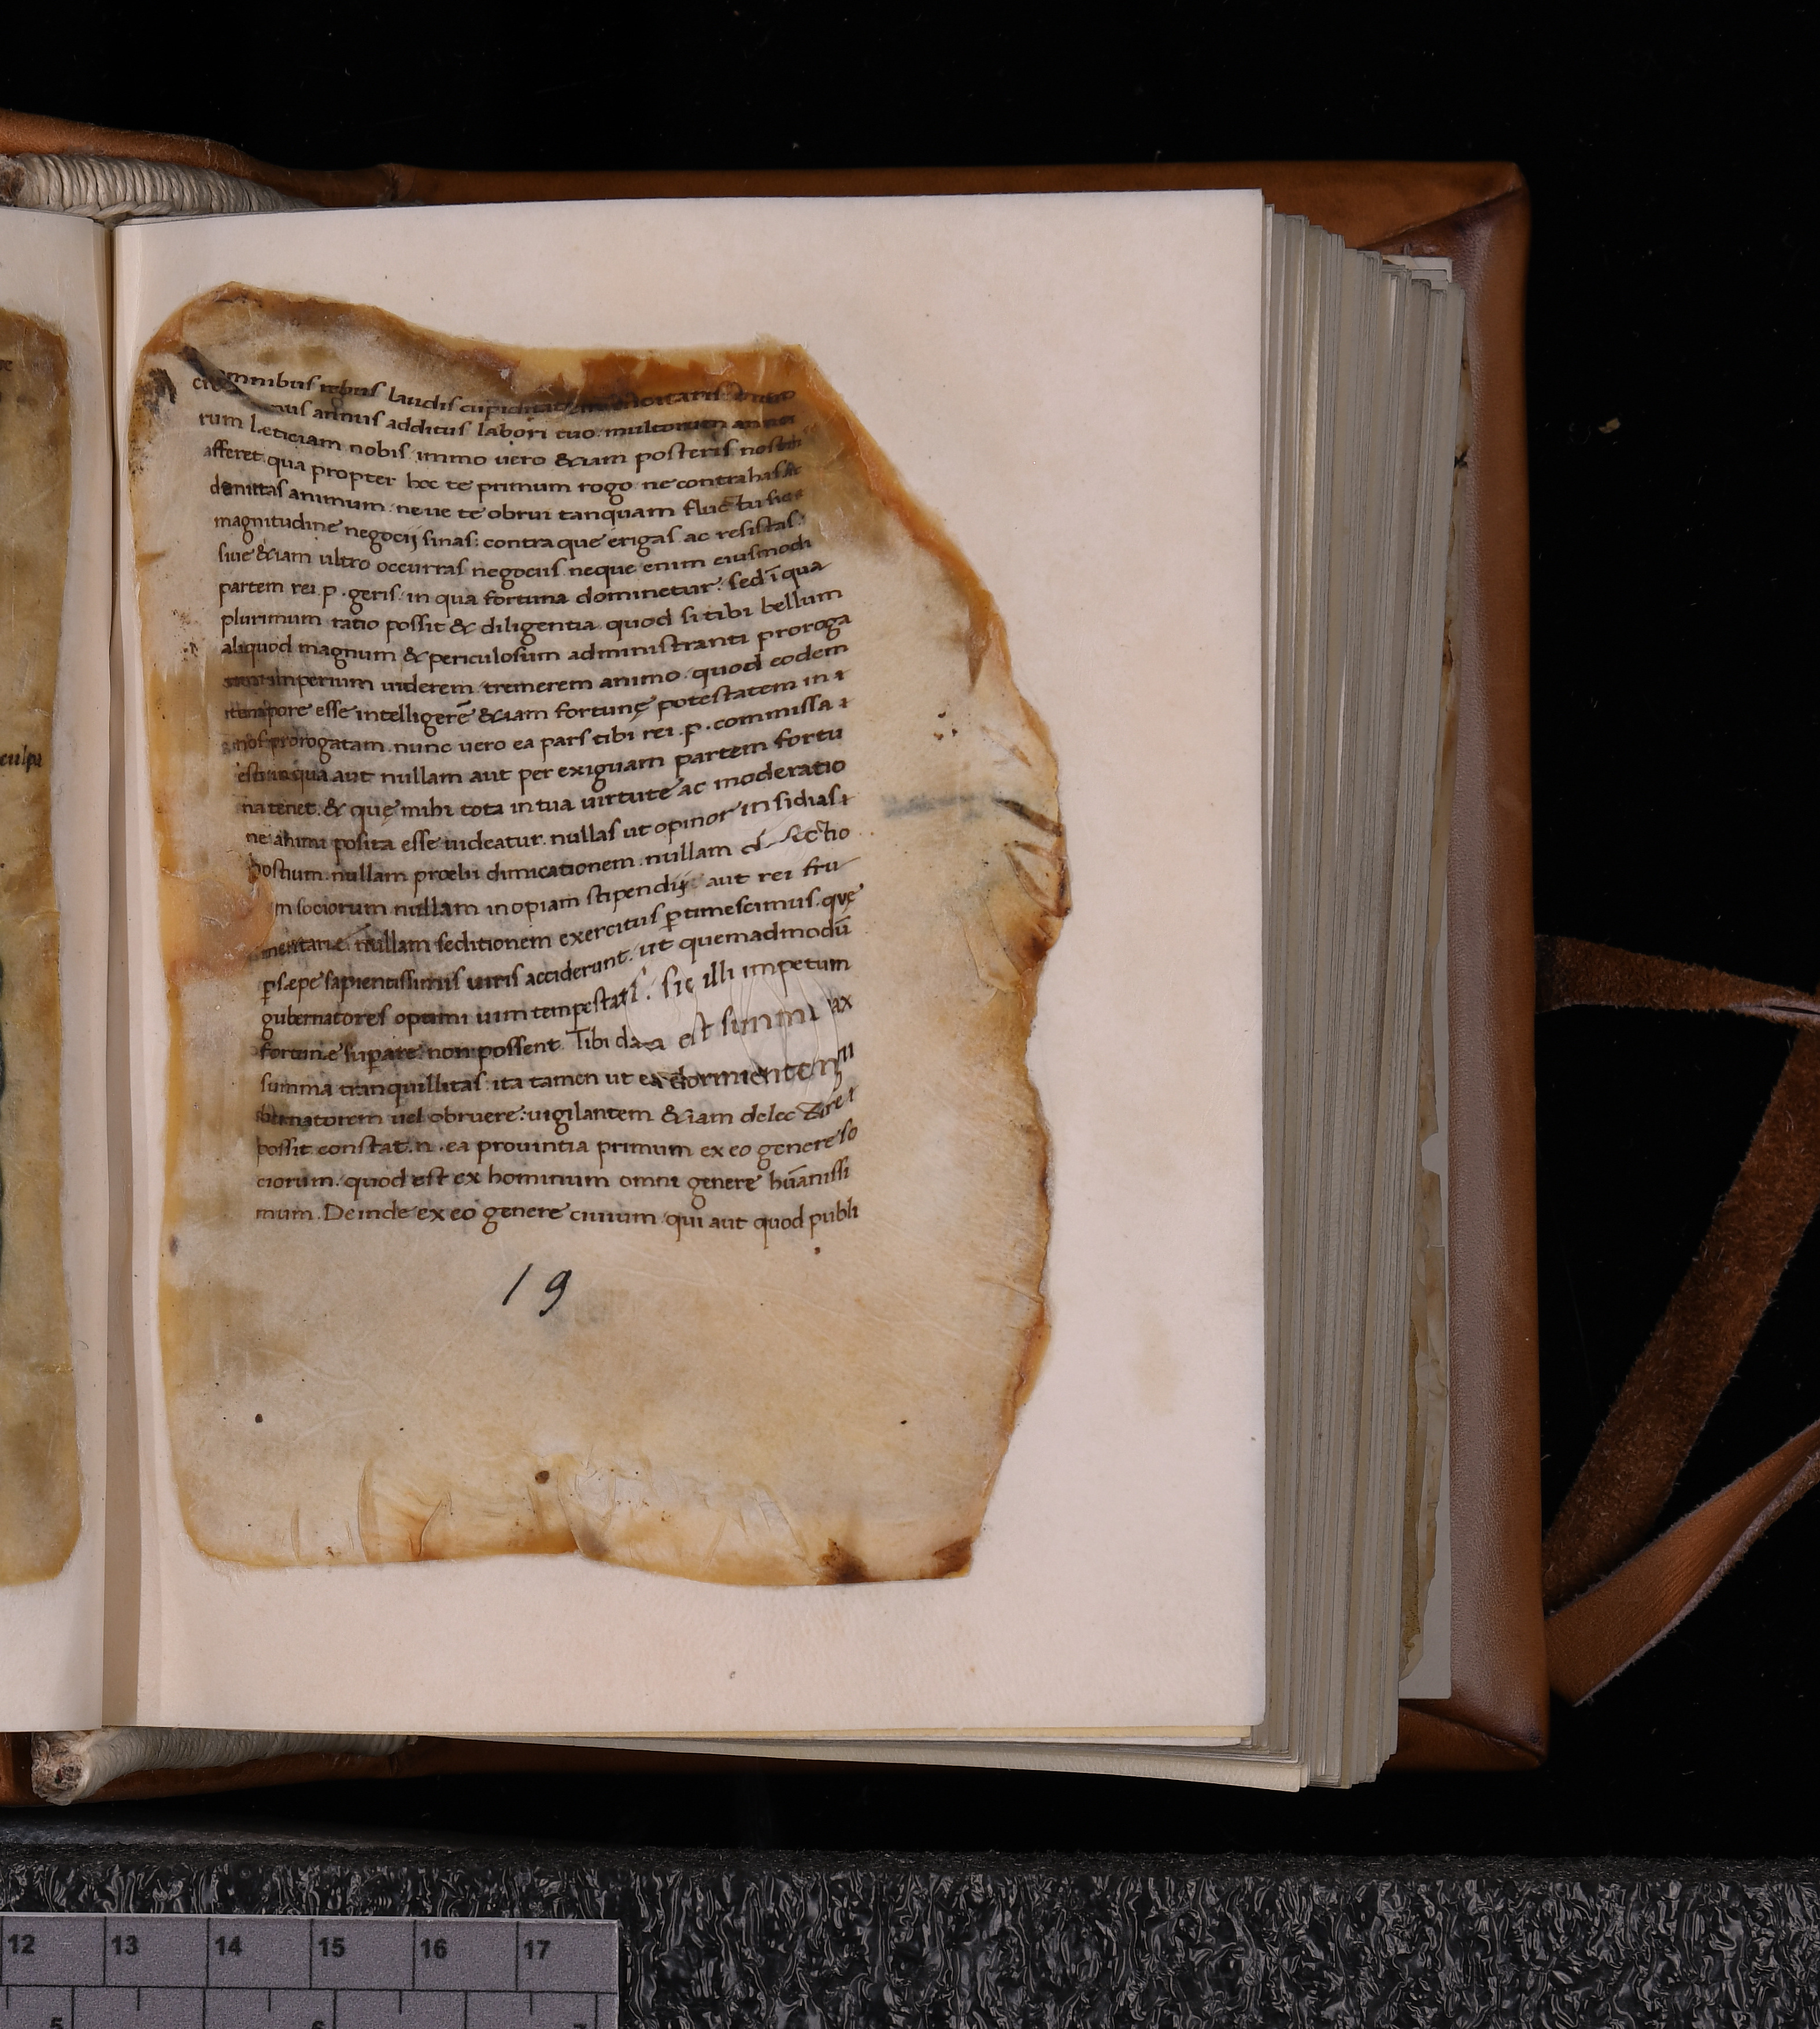 omnibus rebus laudis cupiditatem
annus additus labori tuo multorum
rum lęticiam nobis immo uero &iam posteris nostris
afferet. qua propter hoc te primum rogo ne contrahas ac
demittas animum. neue te obrui tanquam fluctu sic a
magnitudine negocij sinas: contra que erigas ac resistas.
siue &iam ultro occurras negociis neque enim eiusmodi
partem rei .p. geris. in qua fortuna dominetur. sed ī qua
plurimum ratio possit & diligentia. quod si tibi bellum
aliquod magnum & periculosum administranti proroga
imperium uiderem. tremerem animo. quod eodem
tempore esse intelligerē &iam fortunę potestatem in
nos prorogatam. nunc uero ea pars tibi rei .p. commissa
est in qua aut nullam aut per exiguam partem fortu
na tenet. & quę mihi tota in tua uirtute ac moderatio
ne animi posita esse uideatur. nullas ut opinor insidias
hostium. nullam proelii dimicationem. nullam
m sociorum nullam inopiam stipendij aut rei fru
mentarię. nullam seditionem exercitus ꝑtimescimus. quę
ꝑsepe sapientissimis uiris acciderunt. ut quemadmodū
gubernatores optimi uim tempestatis. sic illi impetum
fortunę suꝑare non possent. Tibi data est summa pax
summa tranquillitas. ita tamen ut ea dormientem
bernatorem uel obruere: uigilantem &iam delectare
possit. constat .n. ea prouintia primum ex eo genere so
ciorum. quod est ex hominum omni genere hūanissi
mum. Deinde ex eo genere ciuium qui aut quod publi
19
culpa
12 13 14 15 16 17
5 6 7